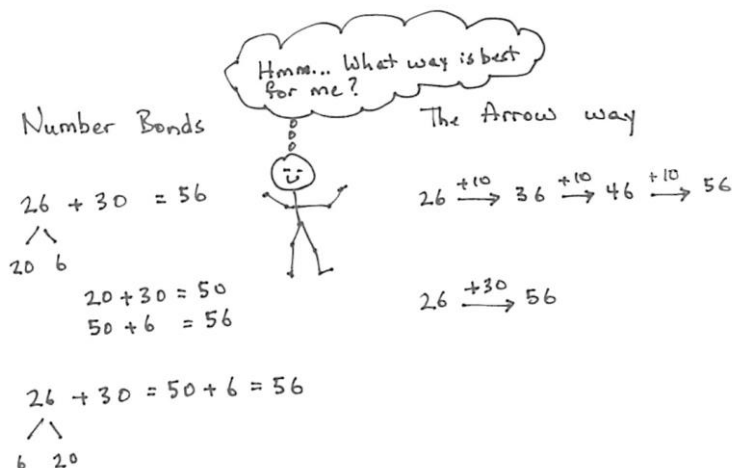 Hmm... What way is best
for me?
Number Bonds
26 + 30 = 56
20 6
20 + 30 = 50
50 + 6 = 56
26 + 30 = 50 + 6 = 56
6 20
The Arrow way
26 +10 → 36 +10 → 46 +10 → 56
26 +30 → 56